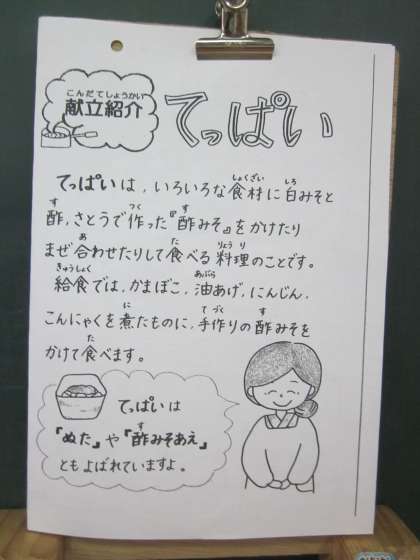 こんだてしょうかい
献立紹介
てっぱい
てっぱいは、いろいろな食材に白みそと
酢、さとうで作った『酢みそ』をかけたり
まぜ合わせたりして食べる料理のことです。
給食では、かまぼこ、油あげ、にんじん、
こんにゃくを煮たものに、手作りの酢みそを
かけて食べます。
てっぱいは
「ぬた」や「酢みそあえ」
ともよばれていますよ。